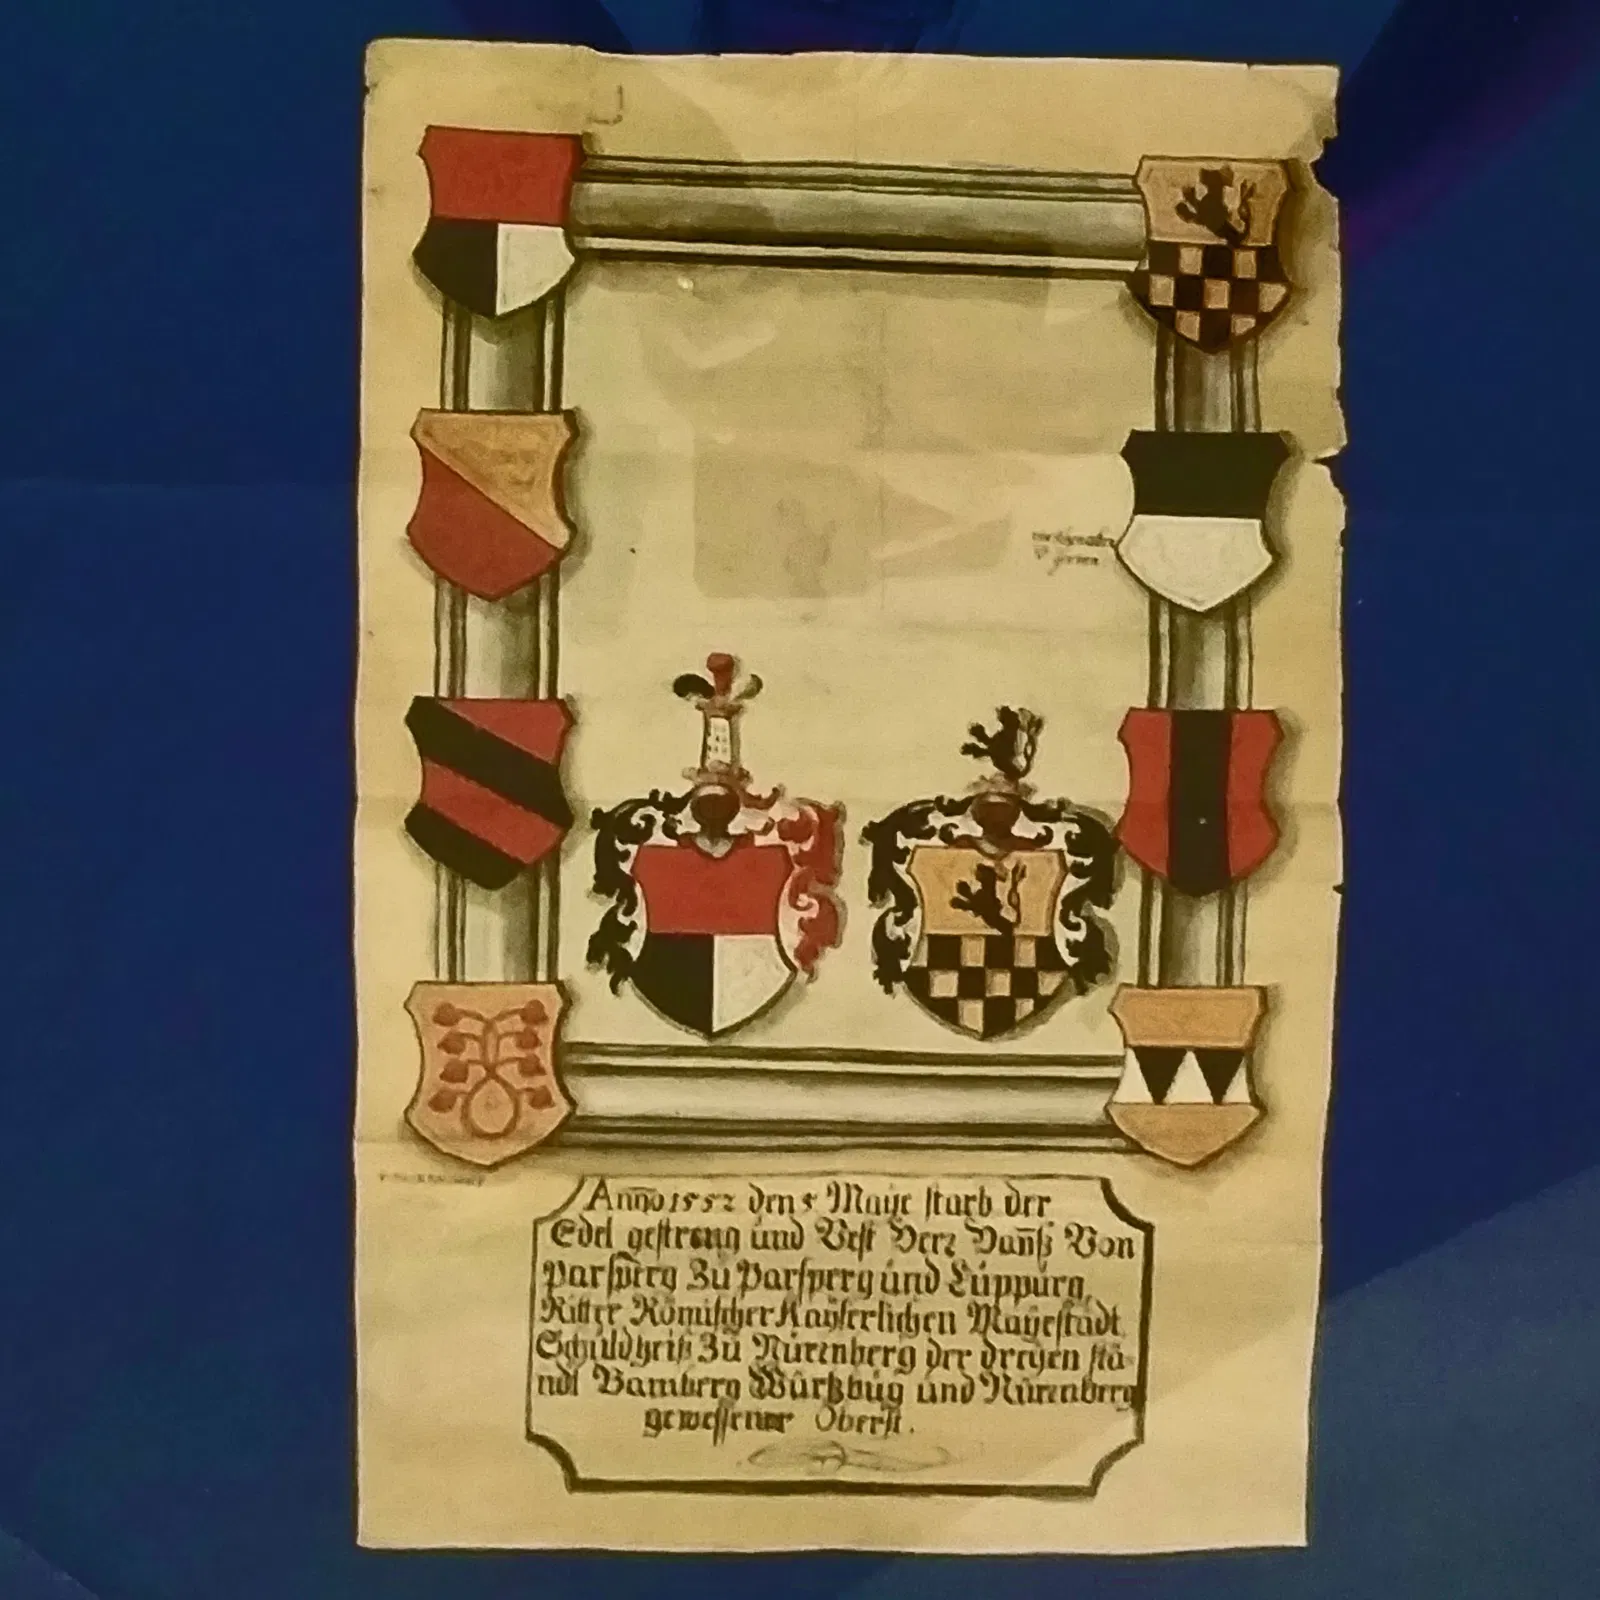 Anno 1552 den 5 Maye starb der
Edel gestreng und Vest Herr Hannß Von
Parsperg Zu Parsperg und Lüppürg,
Ritter Römischer Kayserlichen Mayestädt
Schuldheiß Zu Nürenberg der dreyen stä-
ndt Bamberg Würßbüg und Nürenberg
gewessener Oberst.